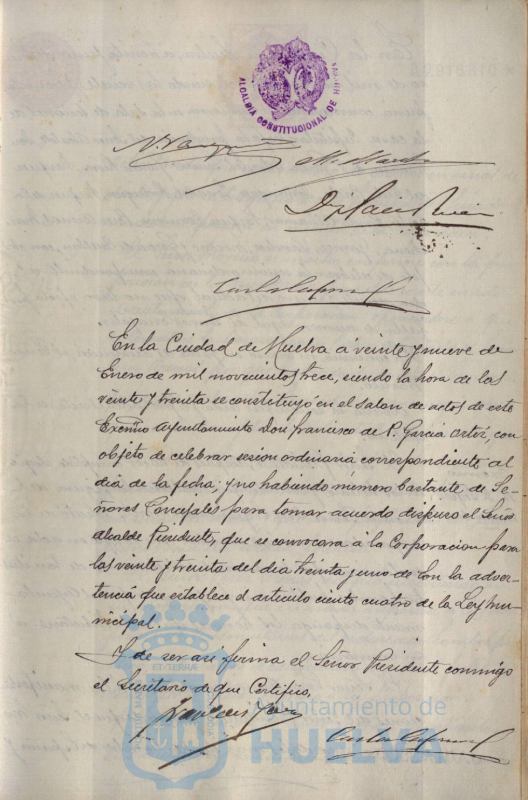 ALCALDIA CONSTITUCIONAL DE HUELVA
En la Ciudad de Huelva á veinte y nueve de
Enero de mil novecientos trece, siendo la hora de las
veinte y treinta se constituyó en el salon de actos de este
Excmo Ayuntamiento Don Francisco de P. Garcia Ortiz, con
objeto de celebrar sesion ordinaria correspondiente al
dia de la fecha; y no habiendo numero bastante de Se-
ñores Concejales para tomar acuerdo dispuso el Señor
Alcalde Presidente, que se convocara á la Corporacion para
las veinte y treinta del dia treinta y uno de con la adver-
tencia que establece el articulo ciento cuatro de la Ley mu-
nicipal.
Y de ser asi firma el Señor Presidente conmigo
el Secretario de que Certifico,
Ayuntamiento de
HUELVA